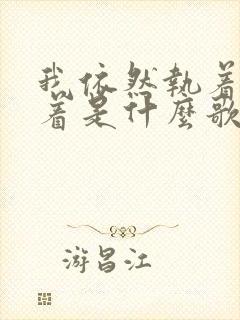 我依然执着
着是什麼歌
游昌江